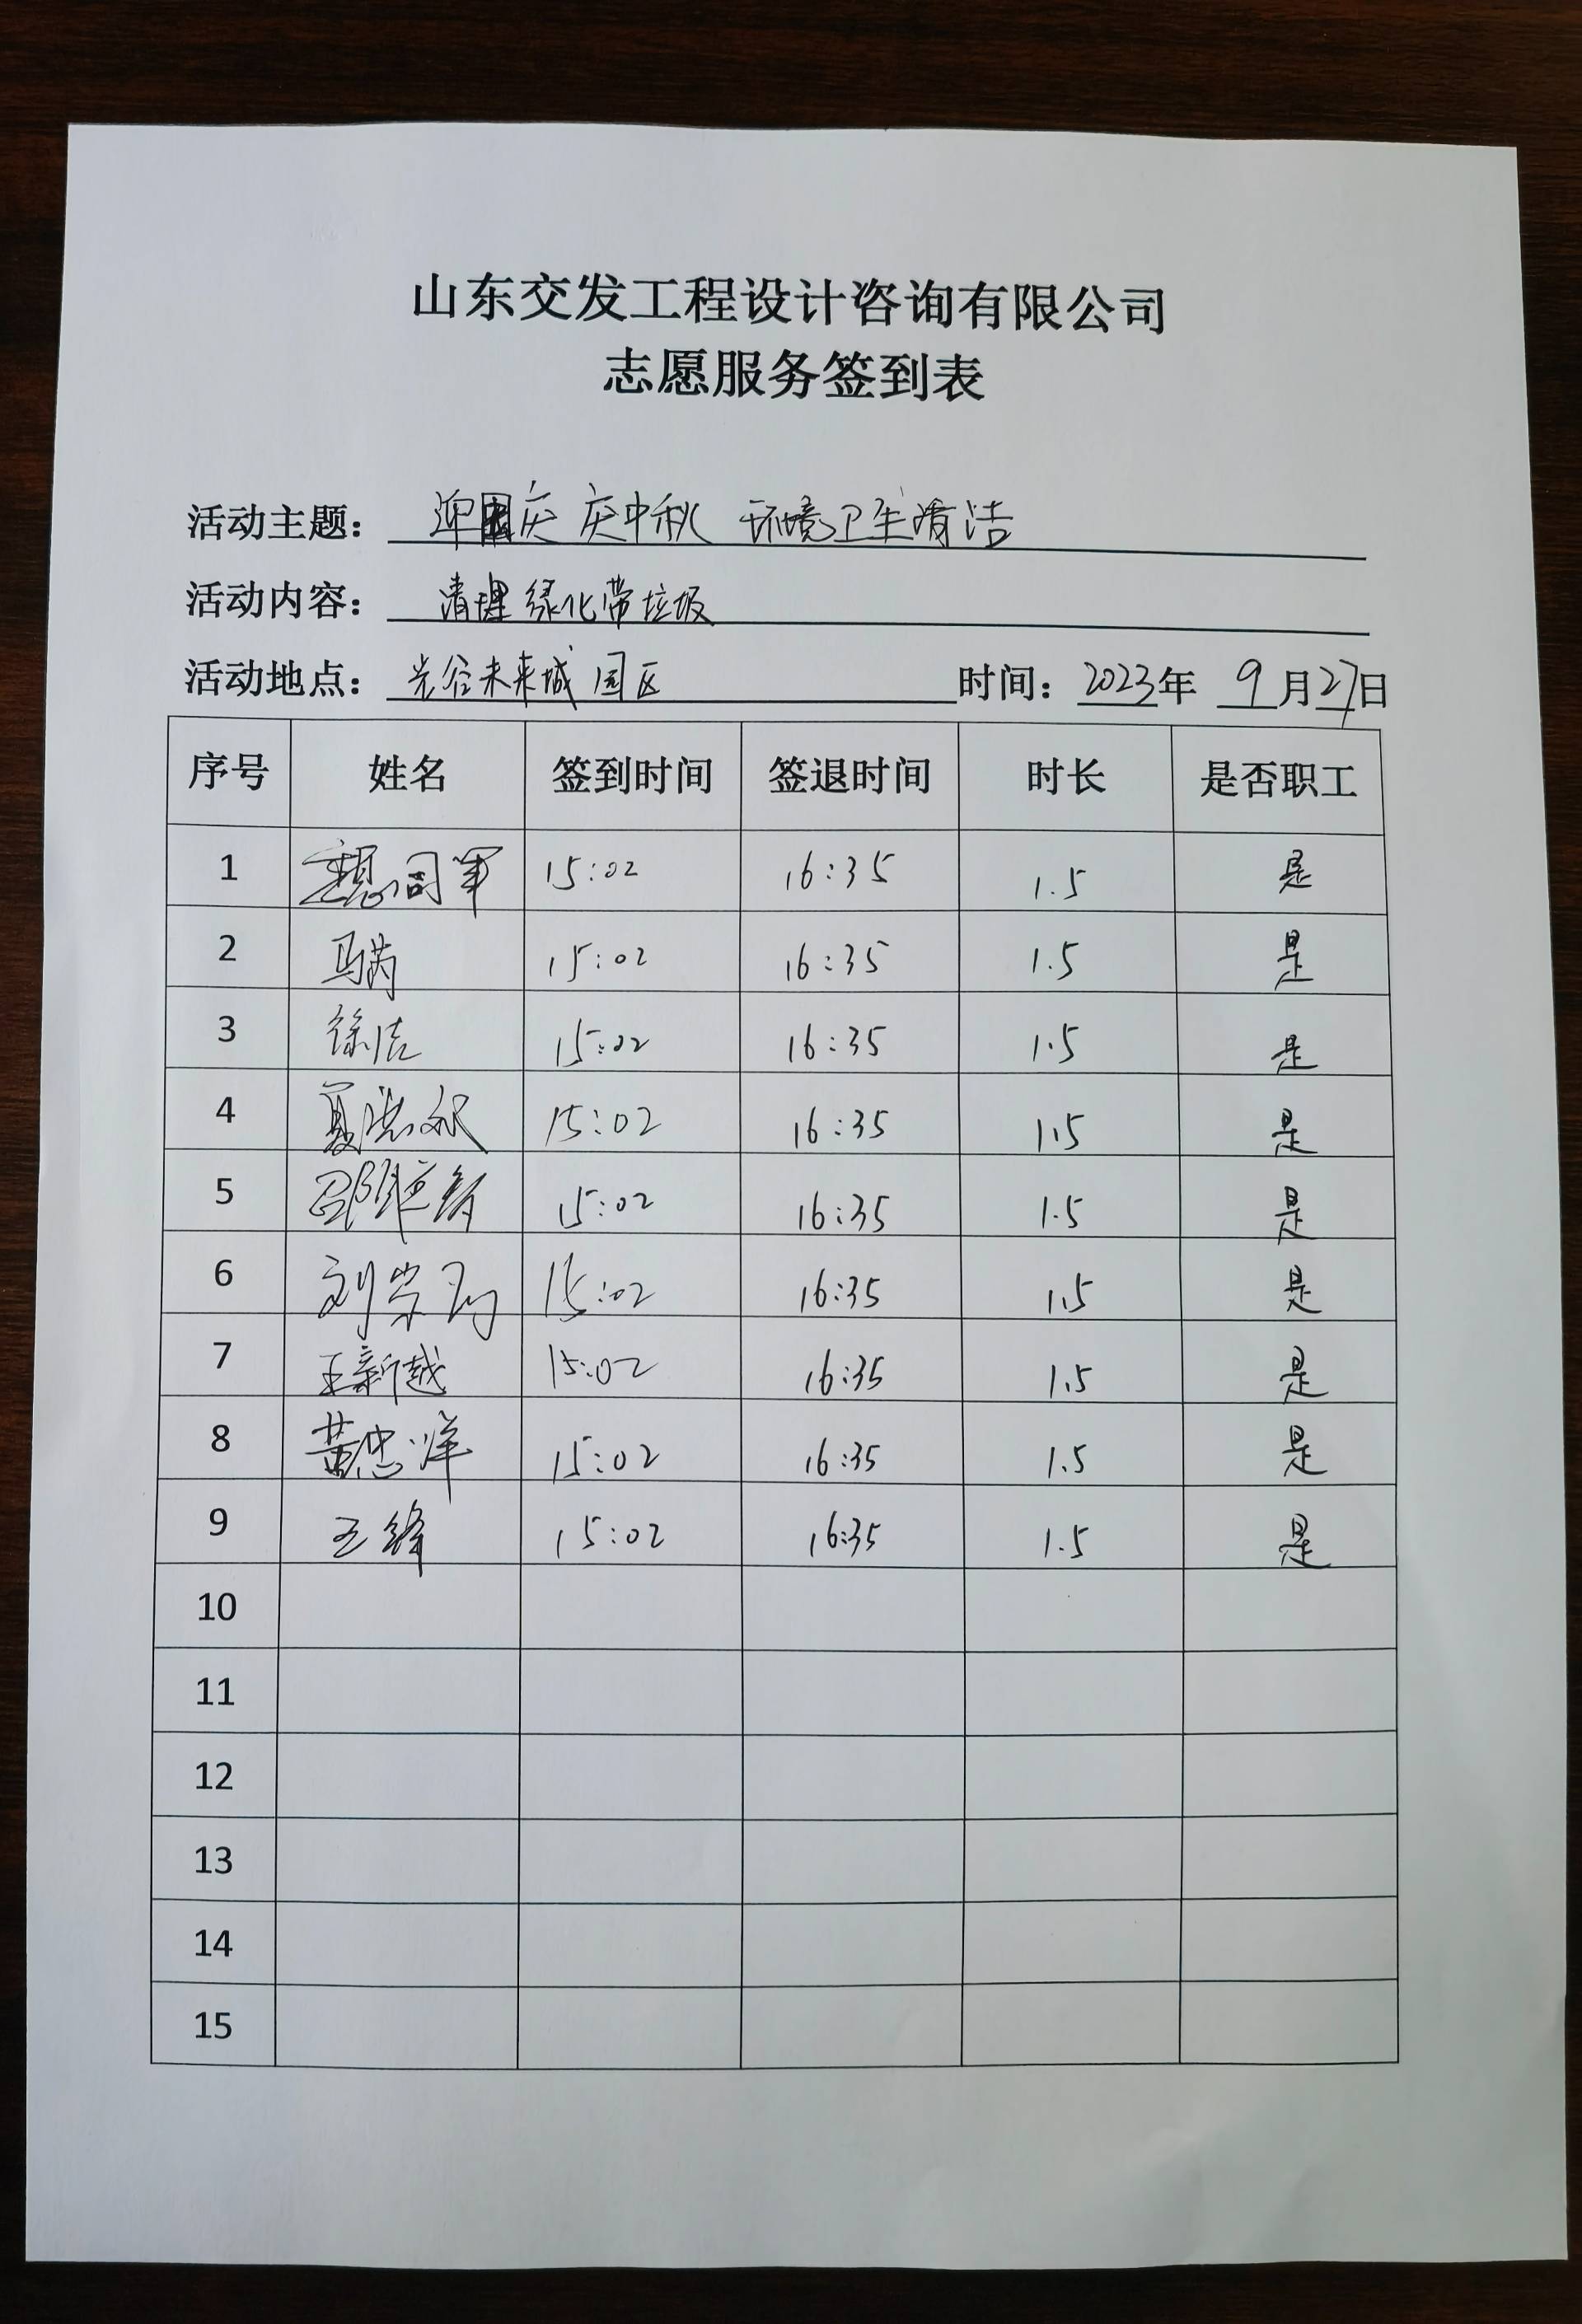 山东交发工程设计咨询有限公司
志愿服务签到表
活动主题： 迎国庆 庆中秋 环境卫生清洁
活动内容： 清理绿化带垃圾
活动地点： 光谷未来城园区 时间：2023年 9月27日
序号 姓名 签到时间 签退时间 时长 是否职工
1 15:02 16:35 1.5 是
2 马芮 15:02 16:35 1.5 是
3 徐洁 15:02 16:35 1.5 是
4 15:02 16:35 1.5 是
5 15:02 16:35 1.5 是
6 15:02 16:35 1.5 是
7 王新越 15:02 16:35 1.5 是
8 黄忠洋 15:02 16:35 1.5 是
9 王锋 15:02 16:35 1.5 是
10
11
12
13
14
15